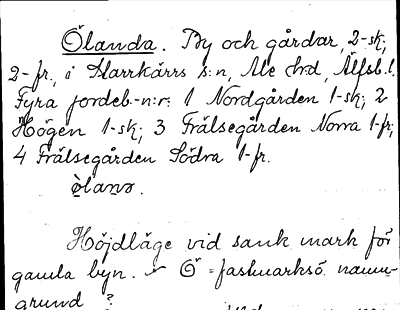 Ölanda. By och gårdar, 2-sk,
2-fr., i Starrkärrs s:n, Ale hd, Älfsb. l.
Fyra jordeb.-n:r: 1 Nordgården 1-sk; 2
Högen 1-sk; 3 Frälsegården Norra 1-fr;
4 Frälsegården Södra 1-fr.
òlanɷ.
Höjdläge vid sank mark för
gamla byn. Ö = fastmarksö. namn-
grund ?